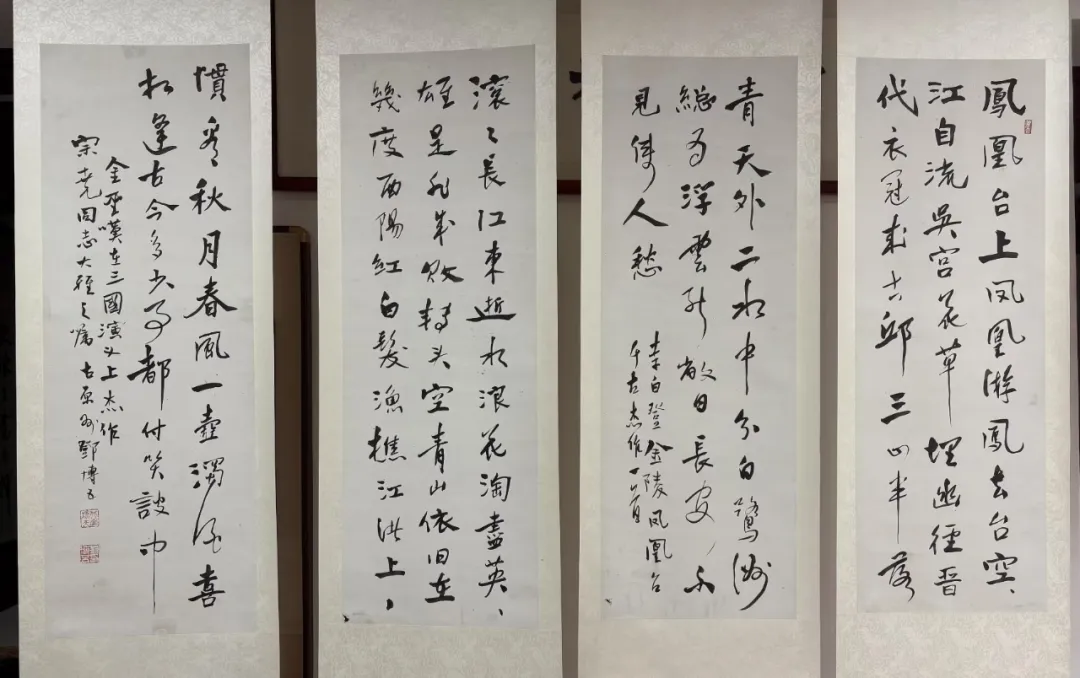 鳳凰台上凤凰游鳳去台空、
江自流吳宮花草埋幽徑晋
代衣冠成古邱三山半落
青天外二水中分白鷺洲
總为浮雲能蔽日長安、不
見使人愁
李白登金陵凤凰台
千古杰作一首
滚〻長江東逝水浪花淘盡英、
雄是非成敗轉头空青山依旧在
幾度西陽红白髮渔樵江渚上、
慣看秋月春風一壺濁酒喜
相逢古今多少事都付笑談中
金聖嘆在三國演义上杰作
宗堯同志大雅之嘱 古原州鄧博五